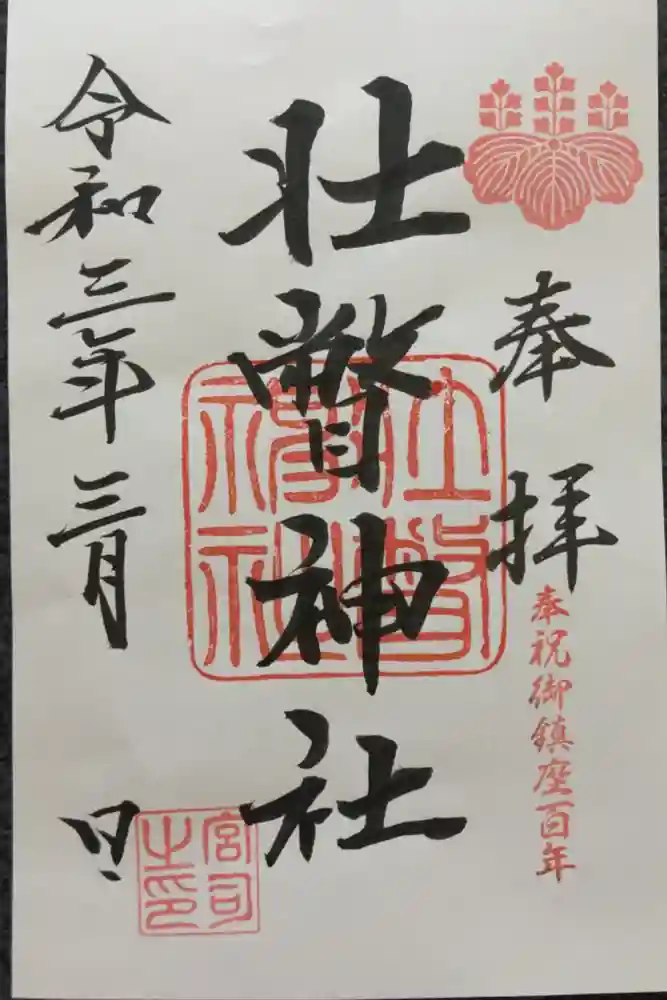 奉拝
奉祝御鎮座百年
壮瞥神社
令和三年三月 日
宮司之印